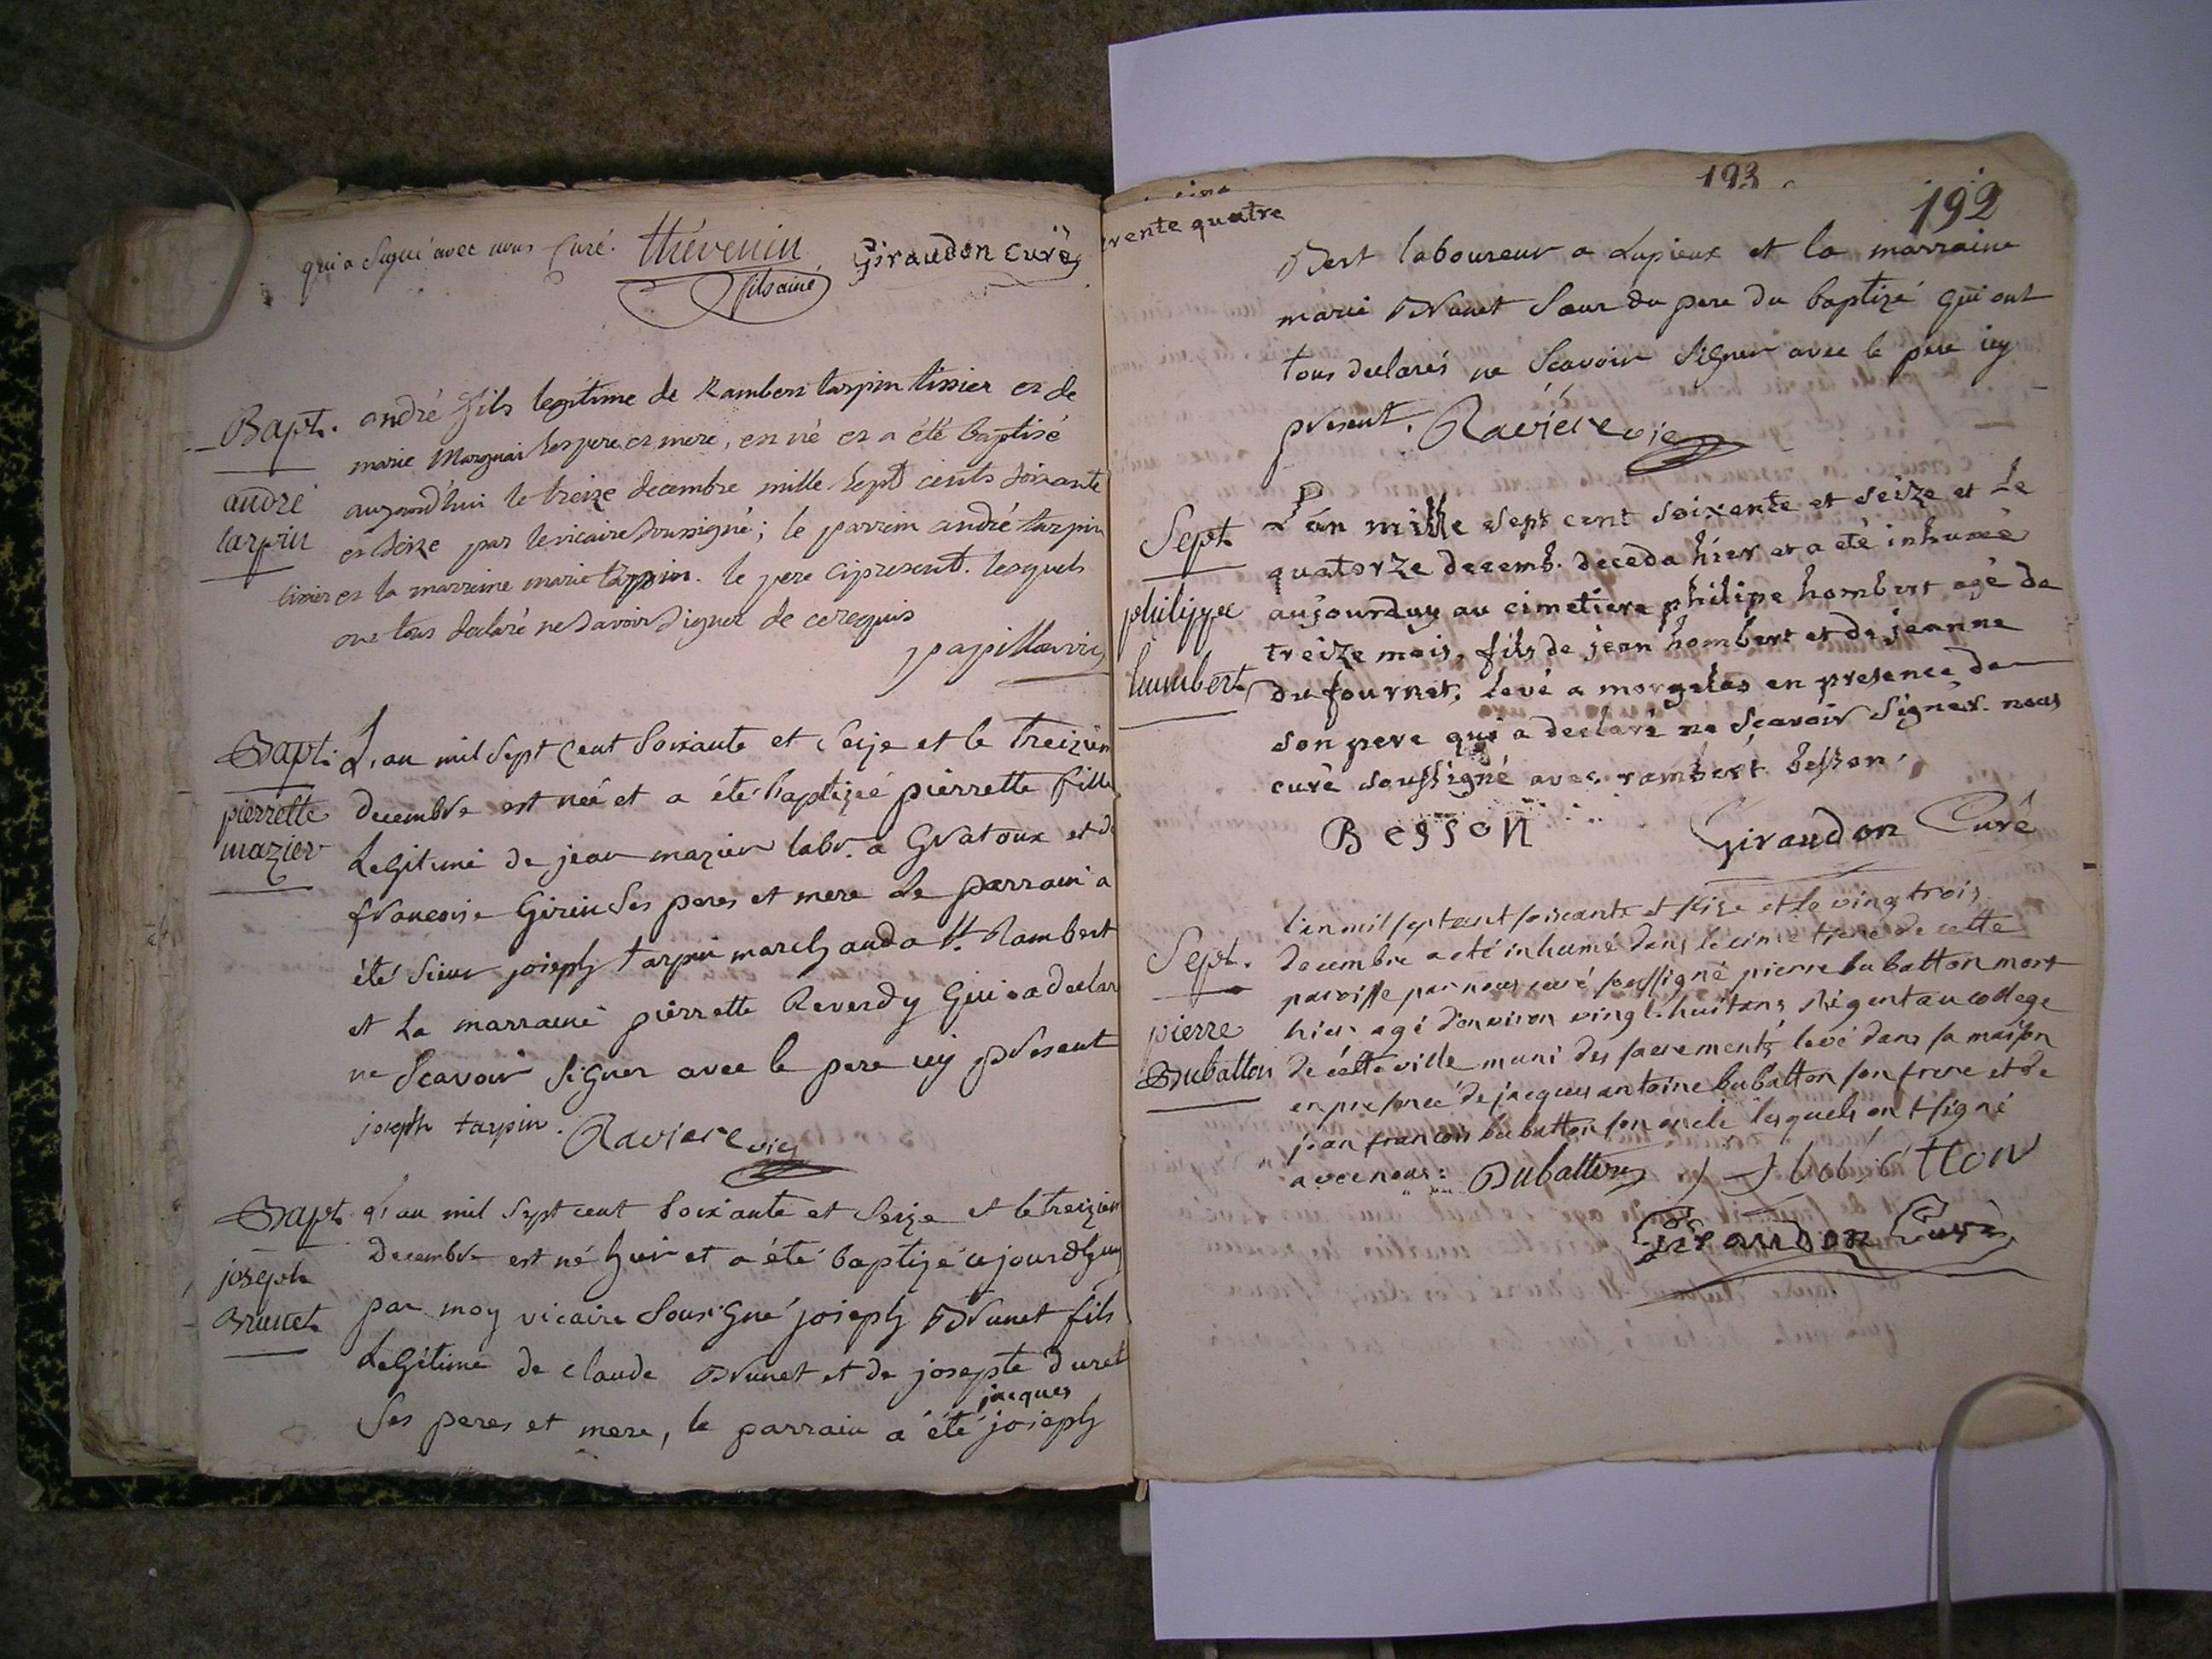 qui a signé avec nous curé. thévenin Giraudon curé
fils ainé
Bapt.
andré
tarpin
andré fils legitime de Rambert tarpin tissier et de
marie Marguai ses pere et mere, est né et a été baptisé
aujourd'hui le treize decembre mille sept cents soixante
et seize par le vicaire soussigné; le parrein andré tarpin
tissier et la marreine marie tarpin. le pere ci present. lesquels
ont tous declaré ne savoir signer de ce requis
papillon vic
Bapt.
pierrette
mazier
L'an mil sept cent soixante et seize et le treizien
decembre est née et a été baptizée pierrette fille
Legitime de jean mazier labr. a Gratoux et d
francoise Girin ses peres et mere Le parrain a
été sieur joseph tarpin marchand a st. Rambert
et La marraine pierrette Reverdy qui a declar
ne scavoir signer avec le pere icy present
joseph tarpin. Raviere vic
Bapt.
joseph
Brunet
L'an mil sept cent soixante et seize et le treizien
decembre est né hier et a été baptizé cejourdhuy
par moy vicaire sousigné joseph Brunet fils
Legitime de claude Brunet et de josepte duret
jacques
ses peres et mere, le parrain a été joseph
193
192
trente quatre
Bert laboureur a Lupieux et la marraine
marie Brunet sœur du pere du baptizé qui ont
tous declarés ne scavoir signer avec le pere icy
present. Raviere vic
Sept.
philippe
humbert
L'an mille sept cent soixente et seize et Le
quatorze decemb. deceda hier et a eté inhumé
aujourduy au cimetiere philipe hombert agé de
treize mois, fils de jean hombert et de jeanne
dufournet, levé a morgelas en presence de
son pere qui a declaré ne sçavoir signer. nous
curé soussigné avec rambert besson.
Besson Giraudon Curé
Sept.
pierre
Bubatton
l'an mil sept cent soixante et seize et le vingt trois
decembre a eté inhumé dans le cimetiere de cette
paroisse par nous curé soussigné pierre bubatton mort
hier agé d'environ vingt-huit ans Régent au college
de cette ville muni des sacrements levé dans sa maison
en presence de jacques antoine bubatton son frere et de
jean francois bubatton son oncle lesquels ont signé
avec nous: Bubatton
Giraudon Curé